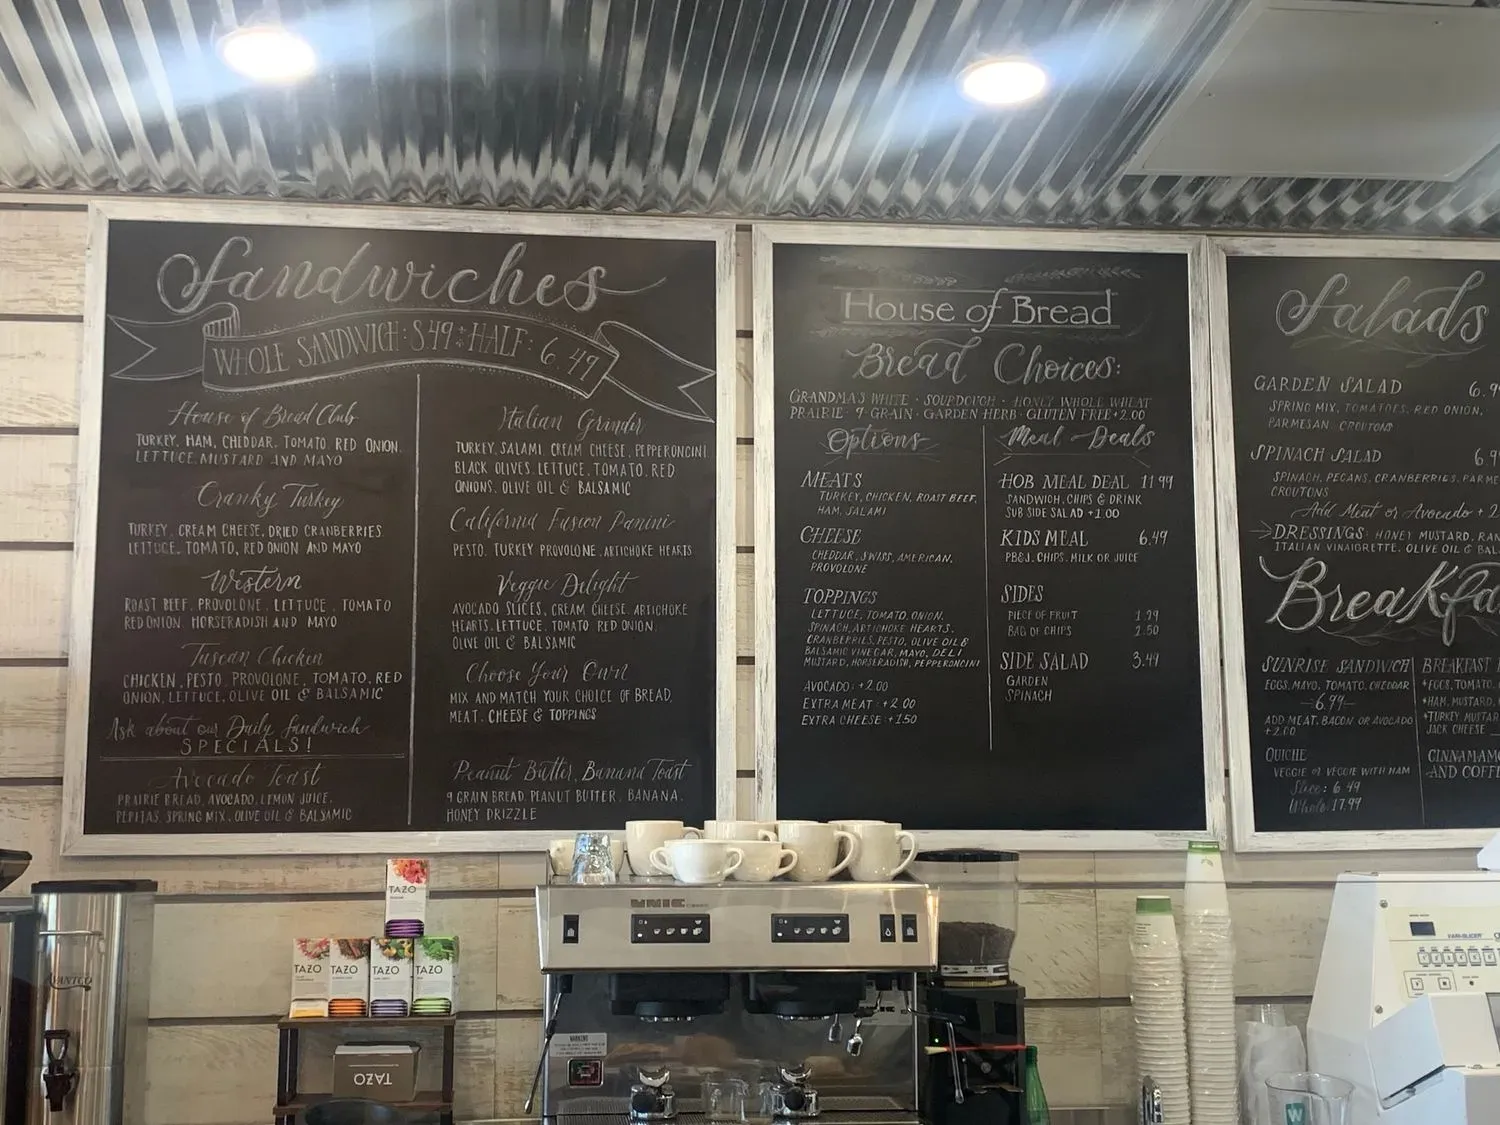 Sandwiches
WHOLE SANDWICH: 8.49 HALF: 6.49
House of Bread Club
TURKEY, HAM, CHEDDAR, TOMATO, RED ONION,
LETTUCE, MUSTARD AND MAYO
Cranky Turkey
TURKEY, CREAM CHEESE, DRIED CRANBERRIES
LETTUCE, TOMATO, RED ONION AND MAYO
Western
ROAST BEEF, PROVOLONE, LETTUCE, TOMATO
RED ONION, HORSERADISH AND MAYO
Tuscan Chicken
CHICKEN, PESTO, PROVOLONE, TOMATO, RED
ONION, LETTUCE, OLIVE OIL & BALSAMIC
Ask about our Daily Sandwich
SPECIALS!
Avocado Toast
PRAIRIE BREAD, AVOCADO, LEMON JUICE,
PEPITAS, SPRING MIX, OLIVE OIL & BALSAMIC
Italian Grinder
TURKEY, SALAMI, CREAM CHEESE, PEPPERONCINI,
BLACK OLIVES, LETTUCE, TOMATO, RED
ONIONS, OLIVE OIL & BALSAMIC
California Fusion Panini
PESTO, TURKEY PROVOLONE, ARTICHOKE HEARTS
Veggie Delight
AVOCADO SLICES, CREAM CHEESE, ARTICHOKE
HEARTS, LETTUCE, TOMATO RED ONION,
OLIVE OIL & BALSAMIC
Choose Your Own
MIX AND MATCH YOUR CHOICE OF BREAD,
MEAT, CHEESE & TOPPINGS
Peanut Butter, Banana Toast
9 GRAIN BREAD, PEANUT BUTTER, BANANA,
HONEY DRIZZLE
House of Bread
Bread Choices:
GRANDMA'S WHITE · SOURDOUGH · HONEY WHOLE WHEAT
PRAIRIE · 9-GRAIN · GARDEN HERB · GLUTEN FREE +2.00
Options
MEATS
TURKEY, CHICKEN, ROAST BEEF,
HAM, SALAMI
CHEESE
CHEDDAR, SWISS, AMERICAN,
PROVOLONE
TOPPINGS
LETTUCE, TOMATO, ONION,
SPINACH, ARTICHOKE HEARTS,
CRANBERRIES, PESTO, OLIVE OIL &
BALSAMIC VINEGAR, MAYO, DELI
MUSTARD, HORSERADISH, PEPPERONCINI
AVOCADO: +2.00
EXTRA MEAT: +2.00
EXTRA CHEESE: +1.50
Meal Deals
HOB MEAL DEAL 11.99
SANDWICH, CHIPS & DRINK
SUB SIDE SALAD +1.00
KIDS MEAL 6.49
PB&J, CHIPS, MILK OR JUICE
SIDES
PIECE OF FRUIT 1.39
BAG OF CHIPS 1.50
SIDE SALAD 3.49
GARDEN
SPINACH
Salads
GARDEN SALAD 6.9
SPRING MIX, TOMATOES, RED ONION,
PARMESAN, CROUTONS
SPINACH SALAD 6.9
SPINACH, PECANS, CRANBERRIES, PARME
CROUTONS
Add Meat or Avocado + 2
DRESSINGS: HONEY MUSTARD, RAN
ITALIAN VINAIGRETTE, OLIVE OIL & BAL
Breakfa
SUNRISE SANDWICH
EGGS, MAYO, TOMATO, CHEDDAR
6.99
ADD MEAT, BACON OR AVOCADO
+2.00
QUICHE
VEGGIE OR VEGGIE WITH HAM
Slice: 6.49
Whole: 17.99
BREAKFAST
*EGGS, TOMATO,
*HAM, MUSTARD,
*TURKEY MUSTAR
JACK CHEESE
CINNAMAMO
AND COFFE
TAZO
TAZO
TAZO
TAZO
TAZO
TAZO
AVANTCO
UNIC
WARNING
VARI-SLICER
W